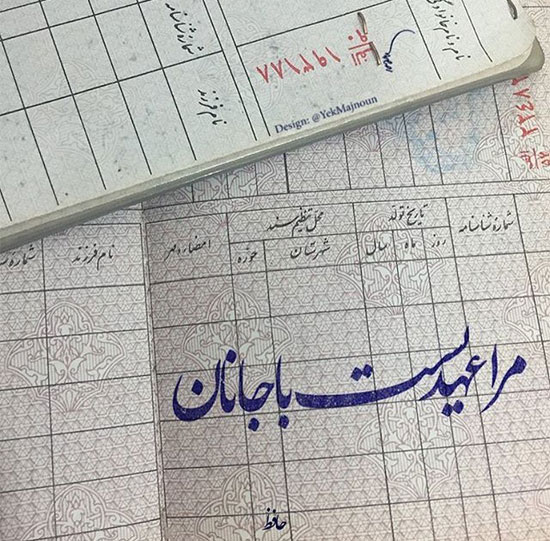 نام و نام خانوادگی
شمارهٔ شناسنامه
نام فرزند
۱۹۳۱۸۸
Design: @YekMajnoun
شمارهٔ شناسنامه
تاریخ تولد
روز
ماه
سال
محل تنظیم سند
شهرستان
حوزه
امضاء و مهر
نام فرزند
مرا عهدیست با جانان
حافظ